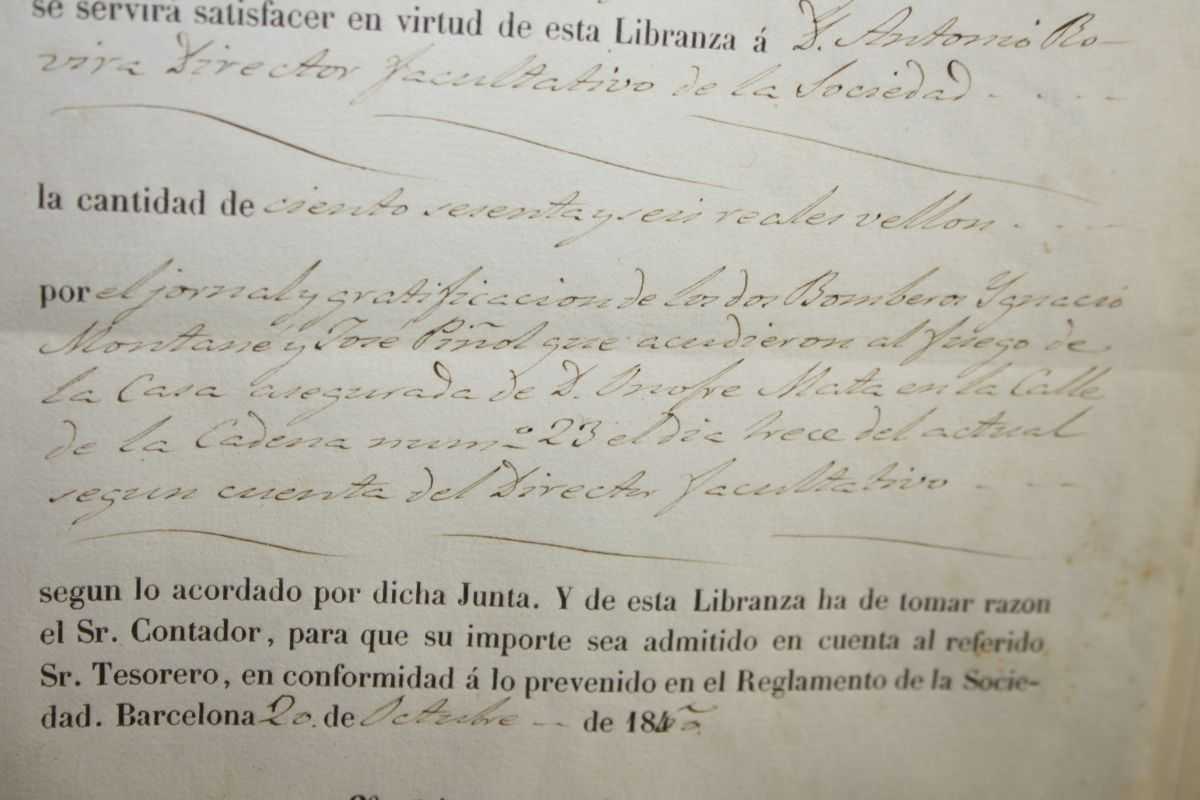 se servirá satisfacer en virtud de esta Libranza á D. Antonio Ro-
vira Director facultativo de la Sociedad
la cantidad de ciento sesenta y seis reales vellon
por el jornal y gratificacion de los dos Bomberos Ygnacio
Montané y José Piñol que acudieron al fuego de
la Casa asegurada de D. Onofre Mata en la Calle
de la Cadena num.o 23 el dia trece del actual
segun cuenta del Director facultativo
segun lo acordado por dicha Junta. Y de esta Libranza ha de tomar razon
el Sr. Contador, para que su importe sea admitido en cuenta al referido
Sr. Tesorero, en conformidad á lo prevenido en el Reglamento de la Socie-
dad. Barcelona 20 de Octubre de